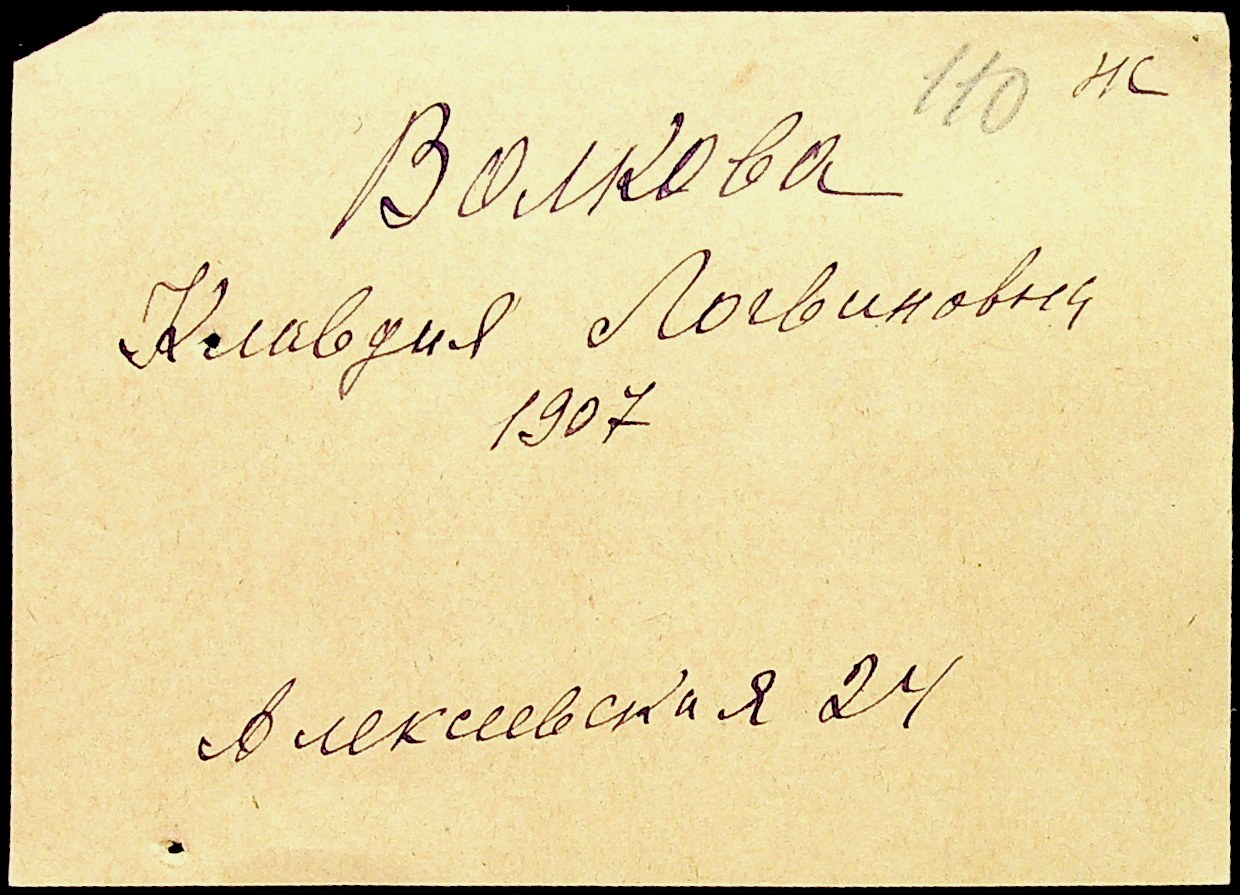 110 Ж
Волкова
Клавдия Логвиновна
1907
Алексеевская 24